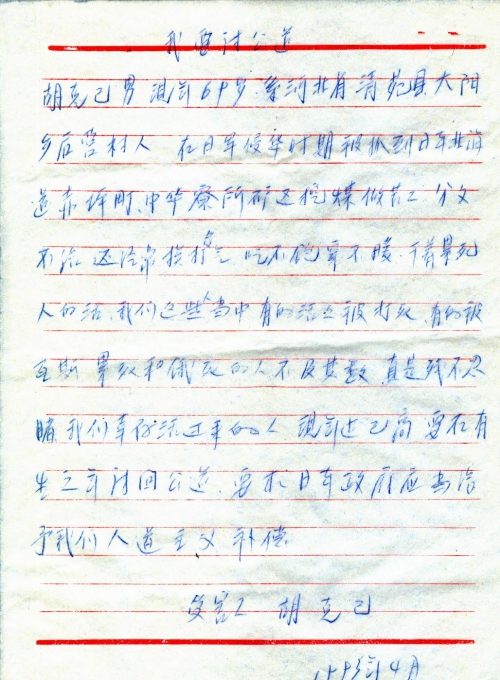 我要讨公道
胡克己 男 现年69岁 系河北省清苑县大阳
乡后营村人 在日军侵华时期被抓到日本北海
道赤坪町,中华寮所矿区挖煤做苦工 分文
不给 还经常挨打受气 吃不饱穿不暖 干着累死
人的活,我们这些人当中有的活活被打死 有的被
瓦斯 累死和饿死的人不及其数 真是残不忍
睹 我们幸存活过来的人 现年迈已高 要在有
生之年讨回公道,要求日本政府应当给
予我们人道主义补偿
受害工 胡克己
1993年4月